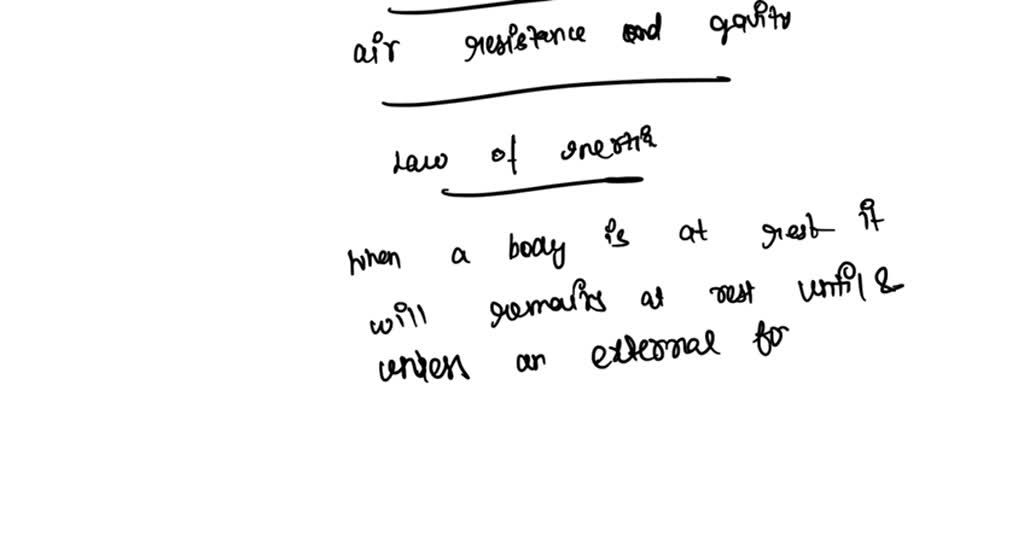 air resistance and gavity
Law of inertia
when a body is at rest it
will remains at rest until &
unless an external fo